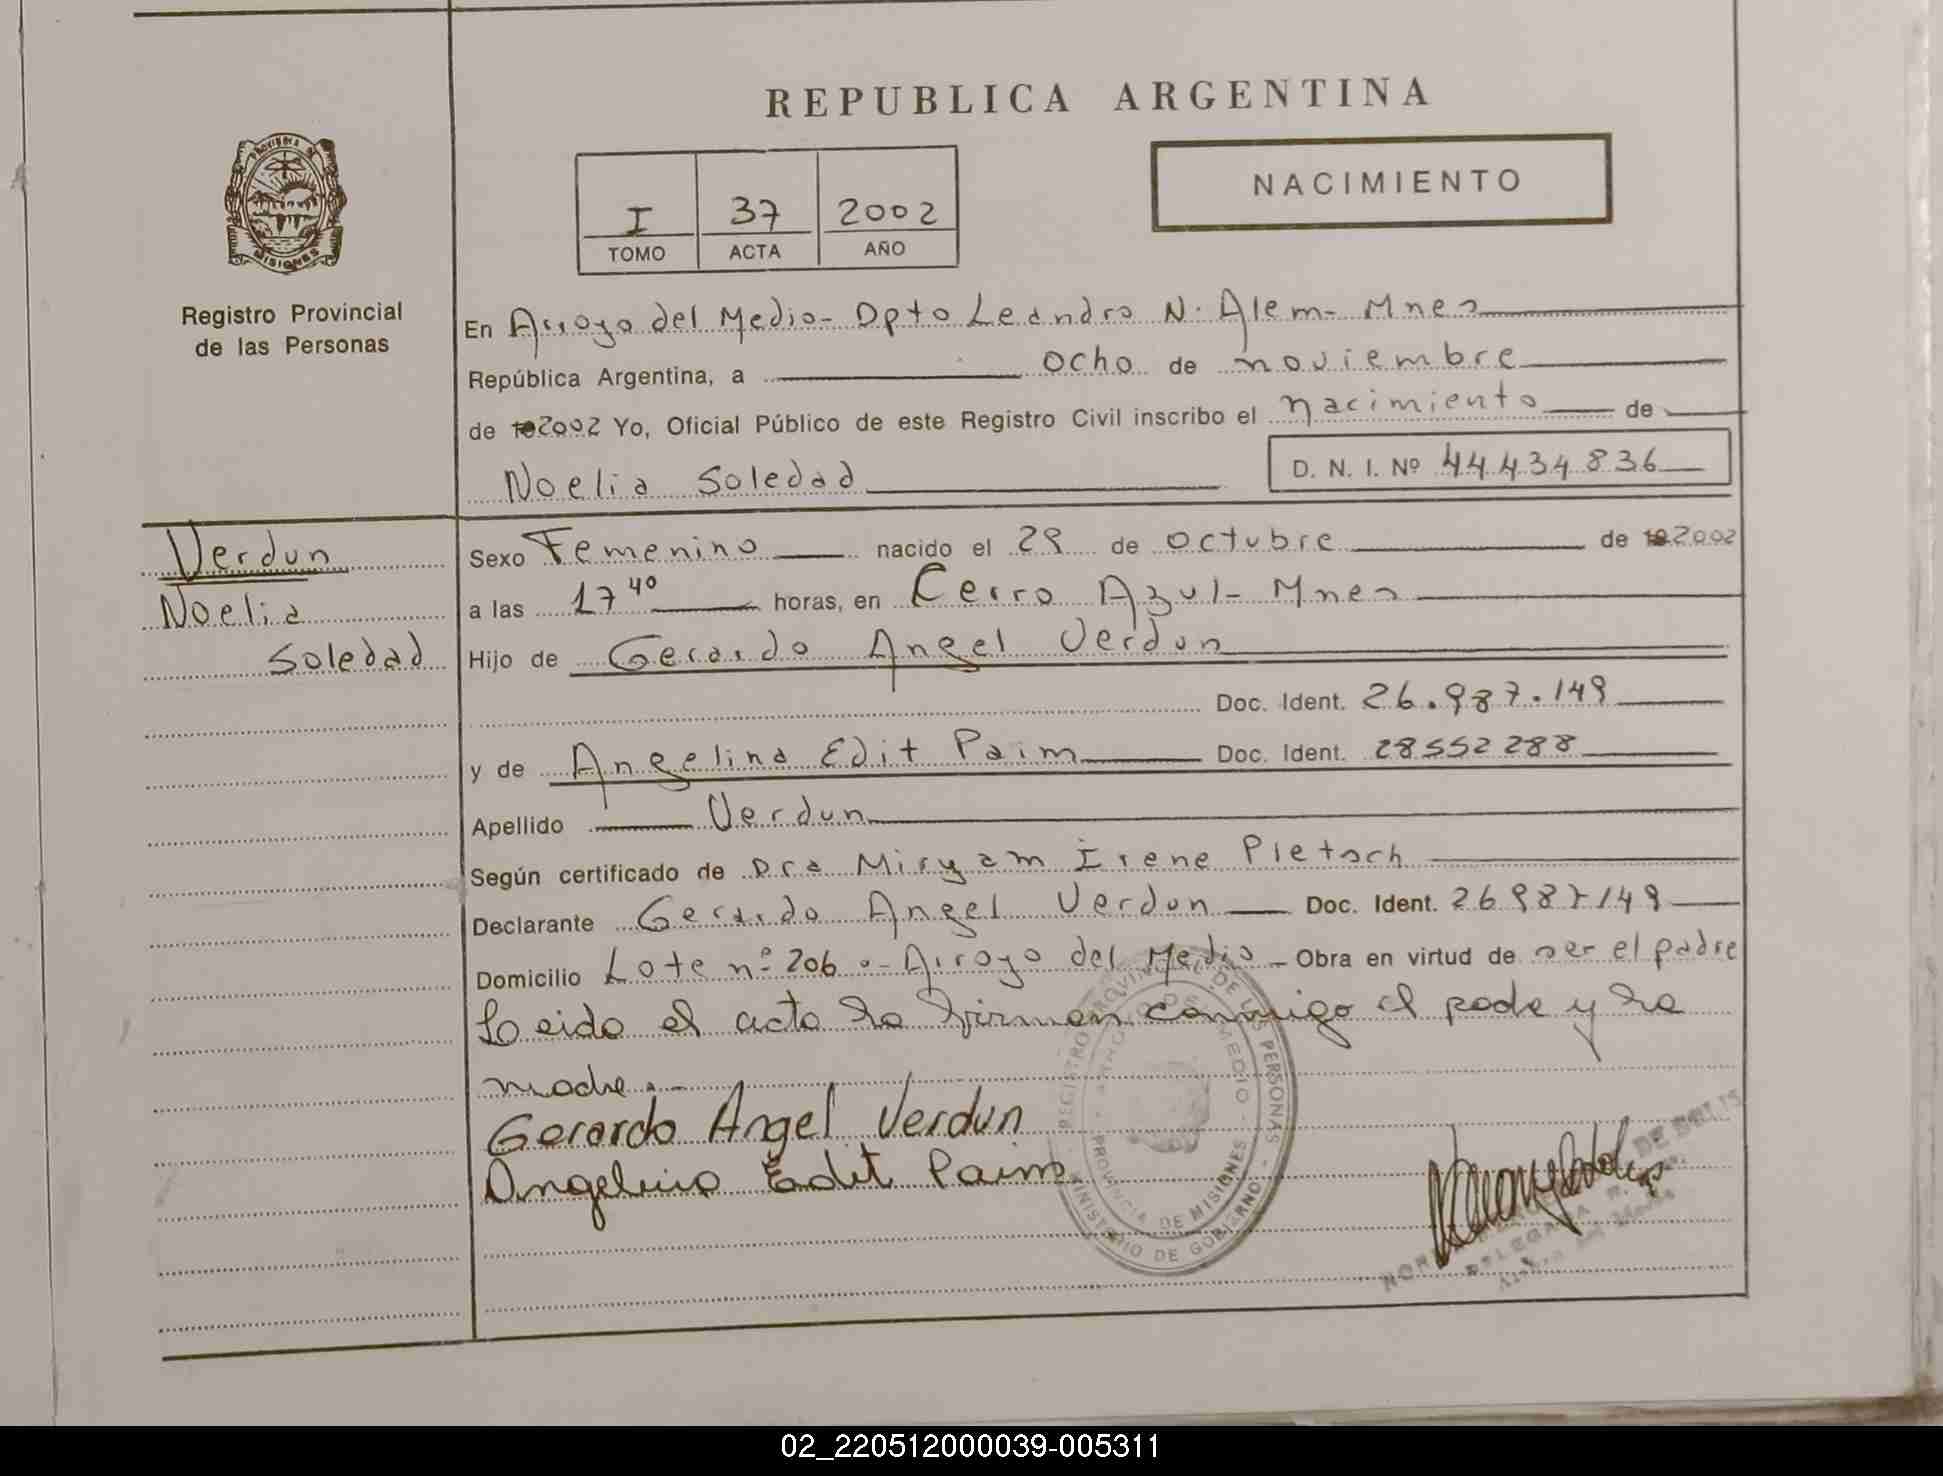 REPUBLICA ARGENTINA
NACIMIENTO
I 37 2002
TOMO ACTA AÑO
PROVINCIA DE MISIONES
Registro Provincial
de las Personas
En Arroyo del Medio - Dpto Leandro N. Alem - Mnes
República Argentina, a ocho de noviembre
de 19 2002 Yo, Oficial Público de este Registro Civil inscribo el nacimiento de
Noelia Soledad D. N. I. Nº 44.434.836
Verdun
Noelia
Soledad
Sexo Femenino nacido el 29 de octubre de 19 2002
a las 17 40 horas, en Cerro Azul - Mnes
Hijo de Gerardo Angel Verdun
Doc. Ident. 26.987.149
y de Angelina Edit Paim Doc. Ident. 28552288
Apellido Verdun
Según certificado de Dra Miryam Irene Pletsch
Declarante Gerardo Angel Verdun Doc. Ident. 26987149
Domicilio Lote nº 206 - Arroyo del Medio - Obra en virtud de ser el padre
Leido el acta la firman conmigo el padre y la
madre.-
Gerardo Angel Verdun
Angelina Edit Paim
REGISTRO PROVINCIAL DE LAS PERSONAS - MINISTERIO DE GOBIERNO -
ARROYO DEL MEDIO - PROVINCIA DE MISIONES
DELEGADA
02_220512000039-005311